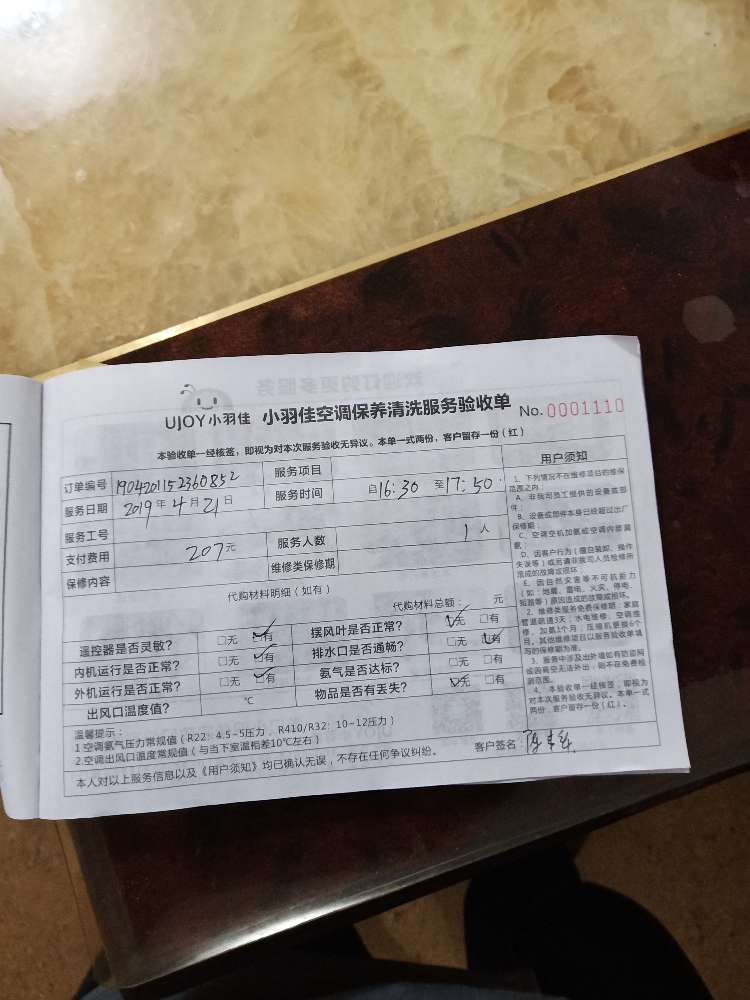 UJOY小羽佳 小羽佳空调保养清洗服务验收单 No. 0001110
本验收单一经核签，即视为对本次服务验收无异议。本单一式两份，客户留存一份（红）
订单编号 1904201152360852 服务项目
服务日期 2019年4月21日 服务时间 自16:30至17:50
服务工号
支付费用 207元 服务人数 1人
保修内容 维修类保修期
代购材料明细（如有）
代购材料总额： 元
遥控器是否灵敏？ □无 □有 摆风叶是否正常？ □无 □有
内机运行是否正常？ □无 □有 排水口是否通畅？ □无 □有
外机运行是否正常？ □无 □有 氨气是否达标？ □无 □有
出风口温度值？ ℃ 物品是否有丢失？ □无 □有
温馨提示：
1.空调氨气压力常规值（R22：4.5-5压力，R410/R32：10-12压力）
2.空调出风口温度常规值（与当下室温相差10℃左右）
客户签名：
本人对以上服务信息以及《用户须知》均已确认无误，不存在任何争议纠纷。
用户须知
1、下列情况不在维修项目的维保
范围之内：
A、非我司员工提供的设备或部
件；
B、设备或部件本身已经超过出厂
保修期；
C、空调空机加氨或空调内漏漏
氨；
D、因客户行为（擅自装卸、操作
失误等）或另请非我司人员检修所
造成的故障或损坏；
E、因自然灾害等不可抗拒力
（如：地震、雷电、火灾、停电、
短路等）原因造成的故障或损坏。
2、维修类服务免费保修期：家庭
管道疏通3天；水电维修、空调维
修、加氨1个月；压缩机更换6个
月，其他维修项目以服务验收单填
写的保修期为准。
3、服务中涉及出外墙如有防盗网
或因高空无法外出，则不在免费检
测范围。
4、本验收单一经核签，即视为
对本次服务验收无异议。本单一式
两份，客户留存一份（红）。